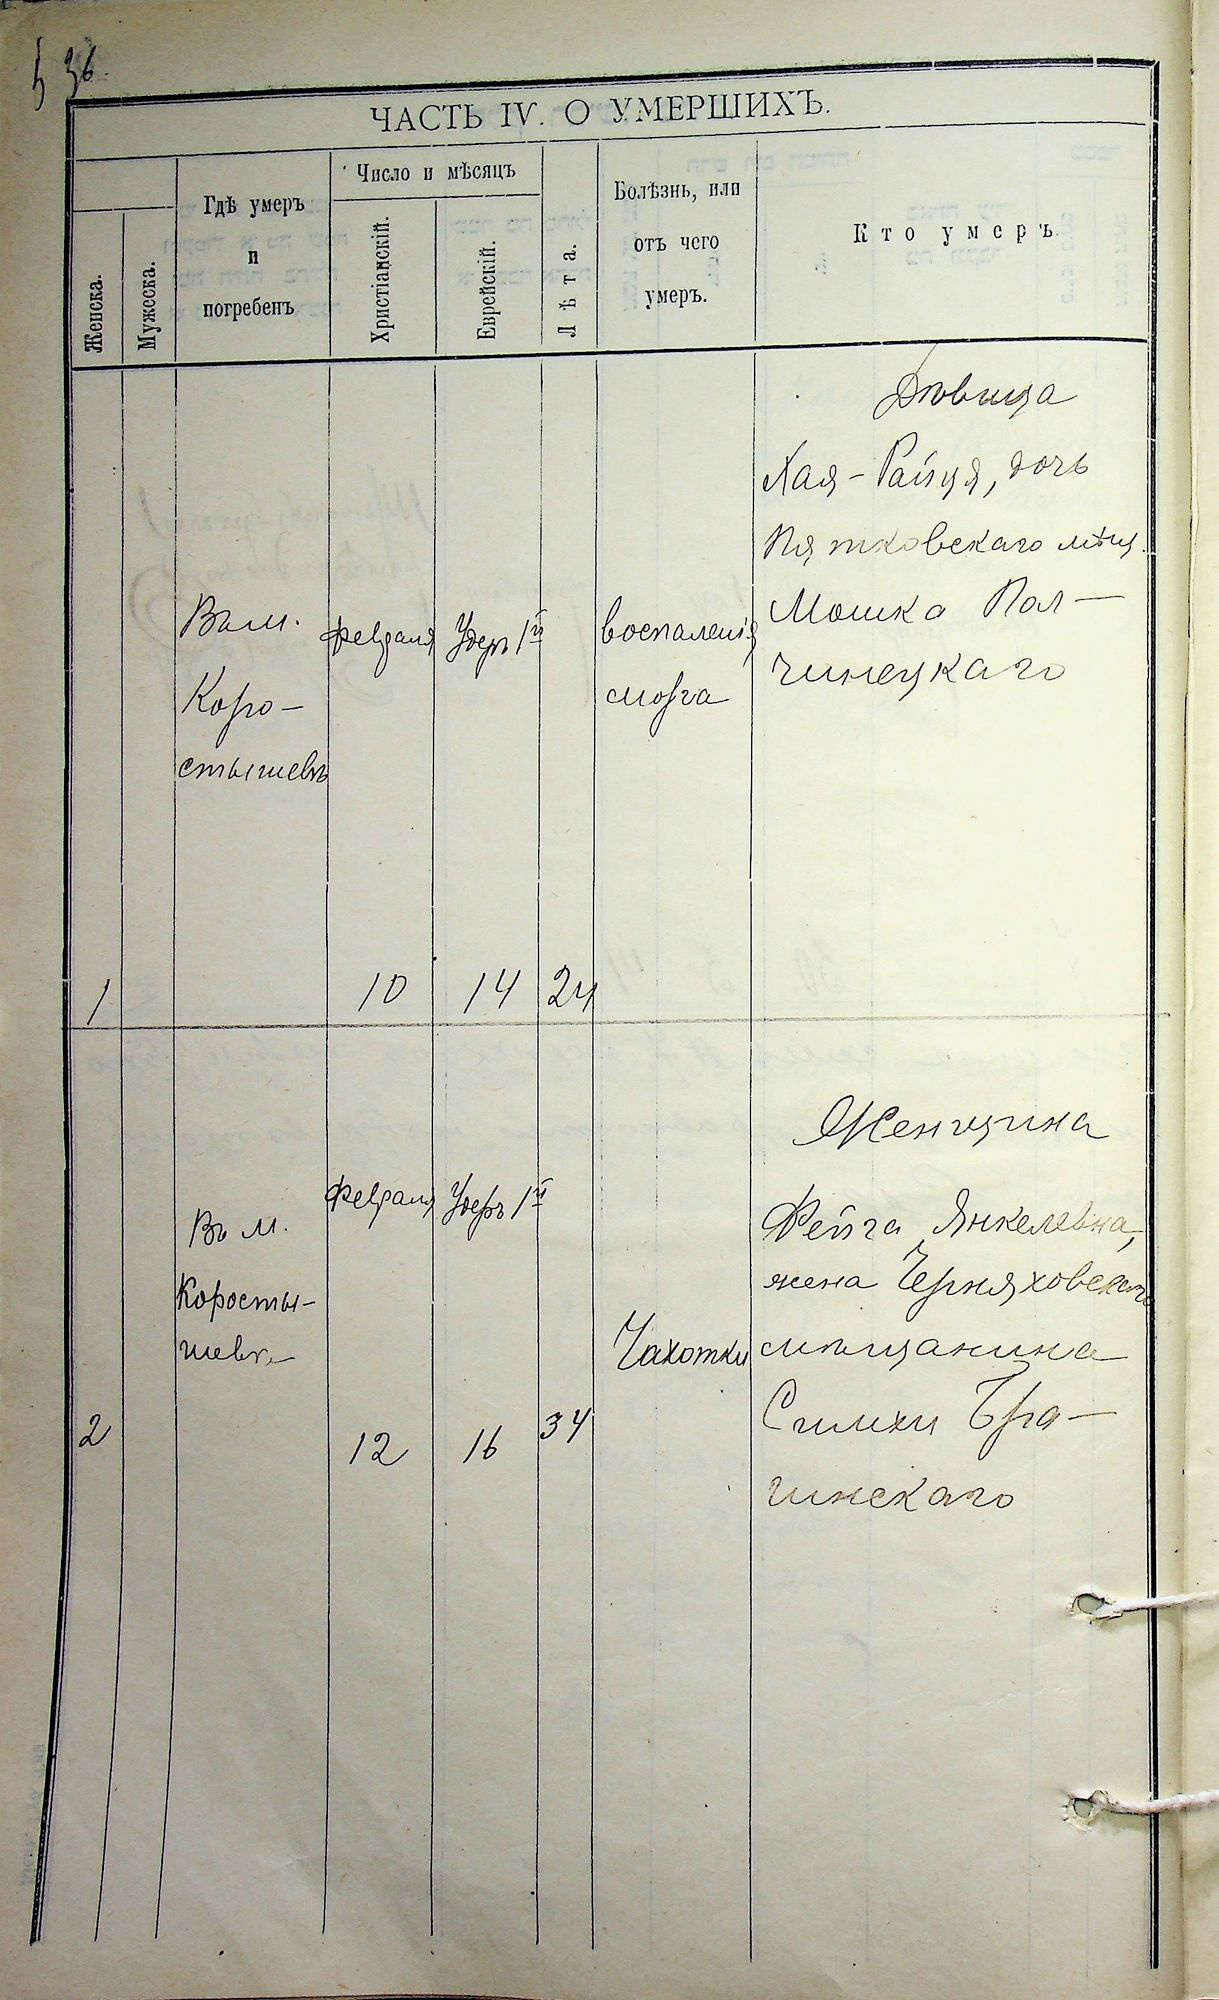 36.
ЧАСТЬ IV. О УМЕРШИХЪ.
Женска.
Мужеска.
Гдѣ умеръ
и
погребенъ
Число и мѣсяцъ
Христіанскій.
Еврейскій.
Лѣта.
Болѣзнь, или
отъ чего
умеръ.
Кто умеръ.
1
Въ м.
Коро-
стышевѣ
Февраля
10
Удеръ 1й
14
24
воспаленія
мозга
Дѣвица
Хая-Райця, дочь
Пятковскаго мѣщ.
Мошка Пол-
чинецкаго
2
Въ м.
Коросты-
шевѣ
Февраля
12
Удеръ 1й
16
34
Чахотки
Женщина
Фейга Янкелевна,
жена Черняховскаго
мѣщанина
Симхи Бра-
гинскаго